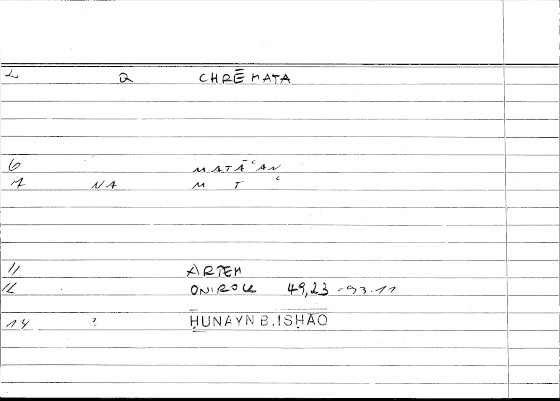 2 Q CHRĒMATA
6 MATĀʿAN
7 NA M T ʿ
11 ARTEM
12 ONIROCR 49,23 = 93.11
14 ? ḤUNAYN B.ISḤĀQ